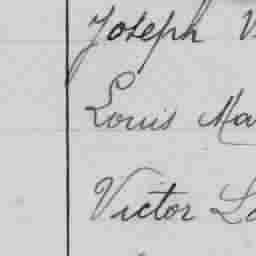 Joseph
Louis Ma
Victor L